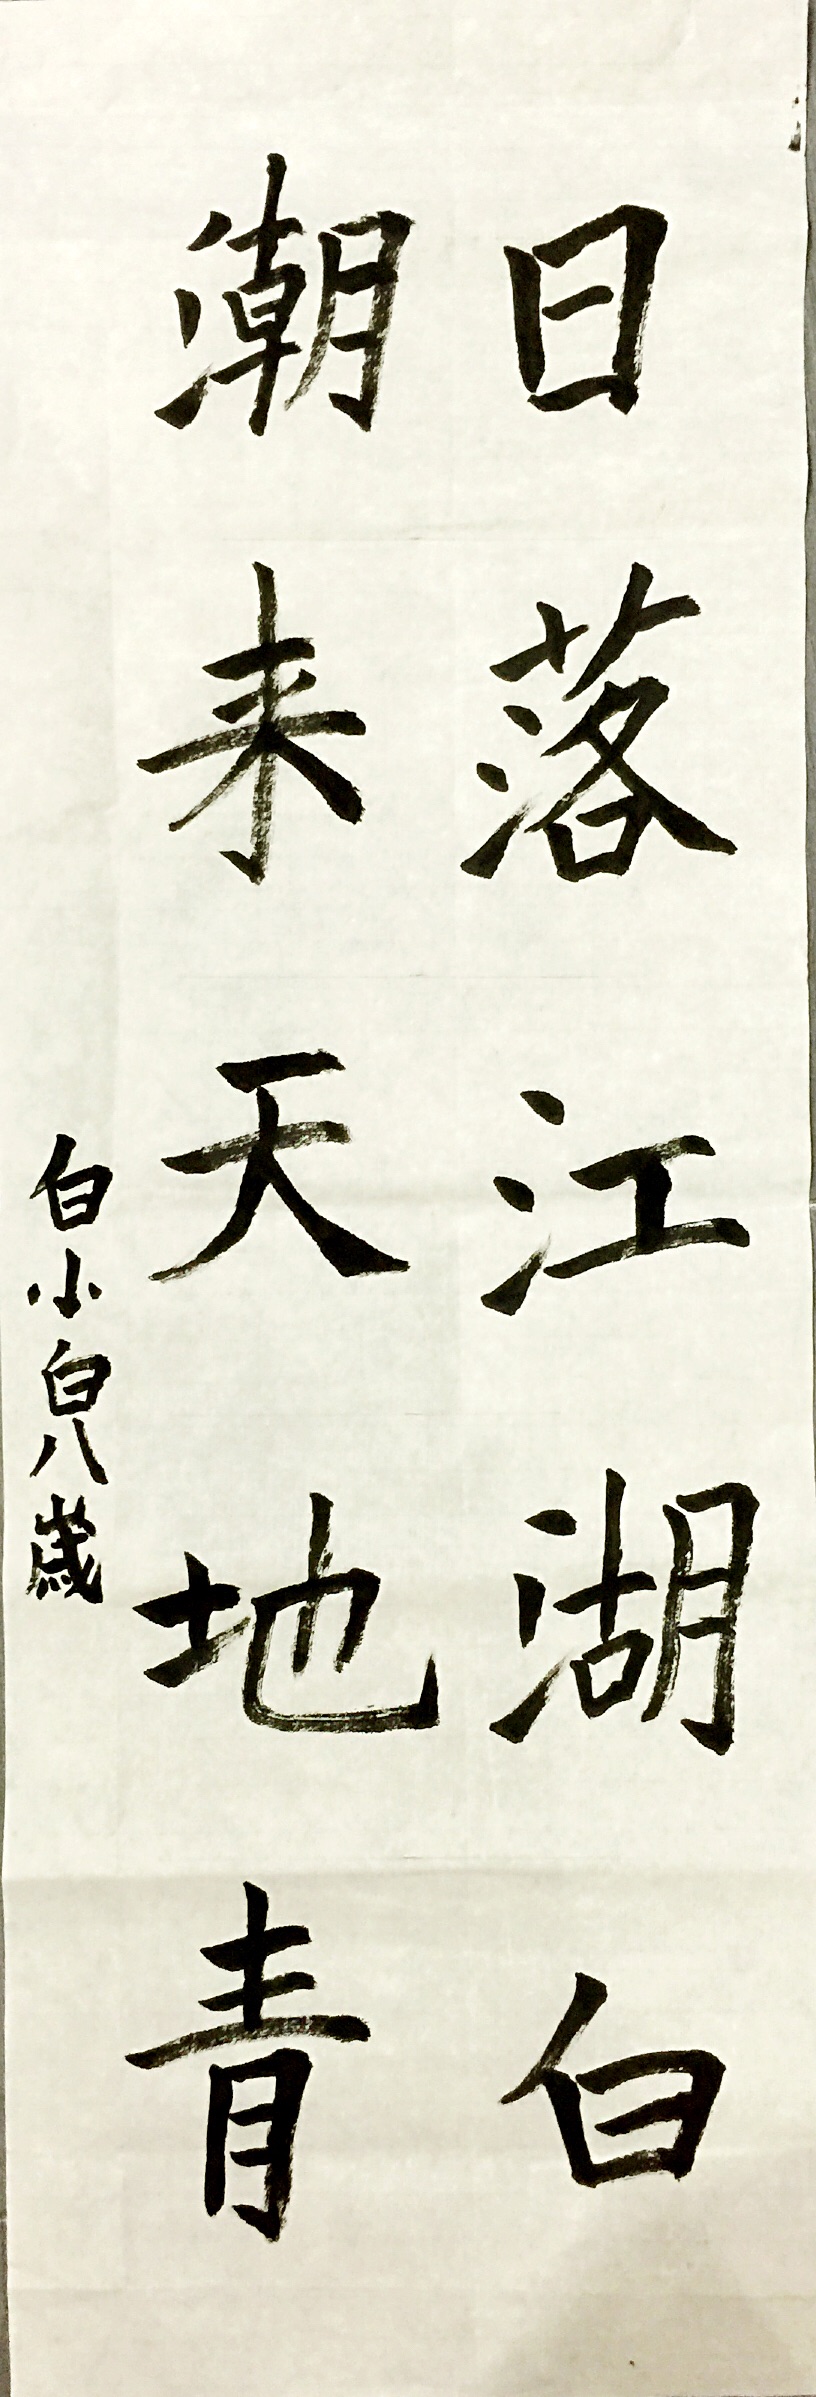 日落江湖白
潮来天地青
白小白八歳